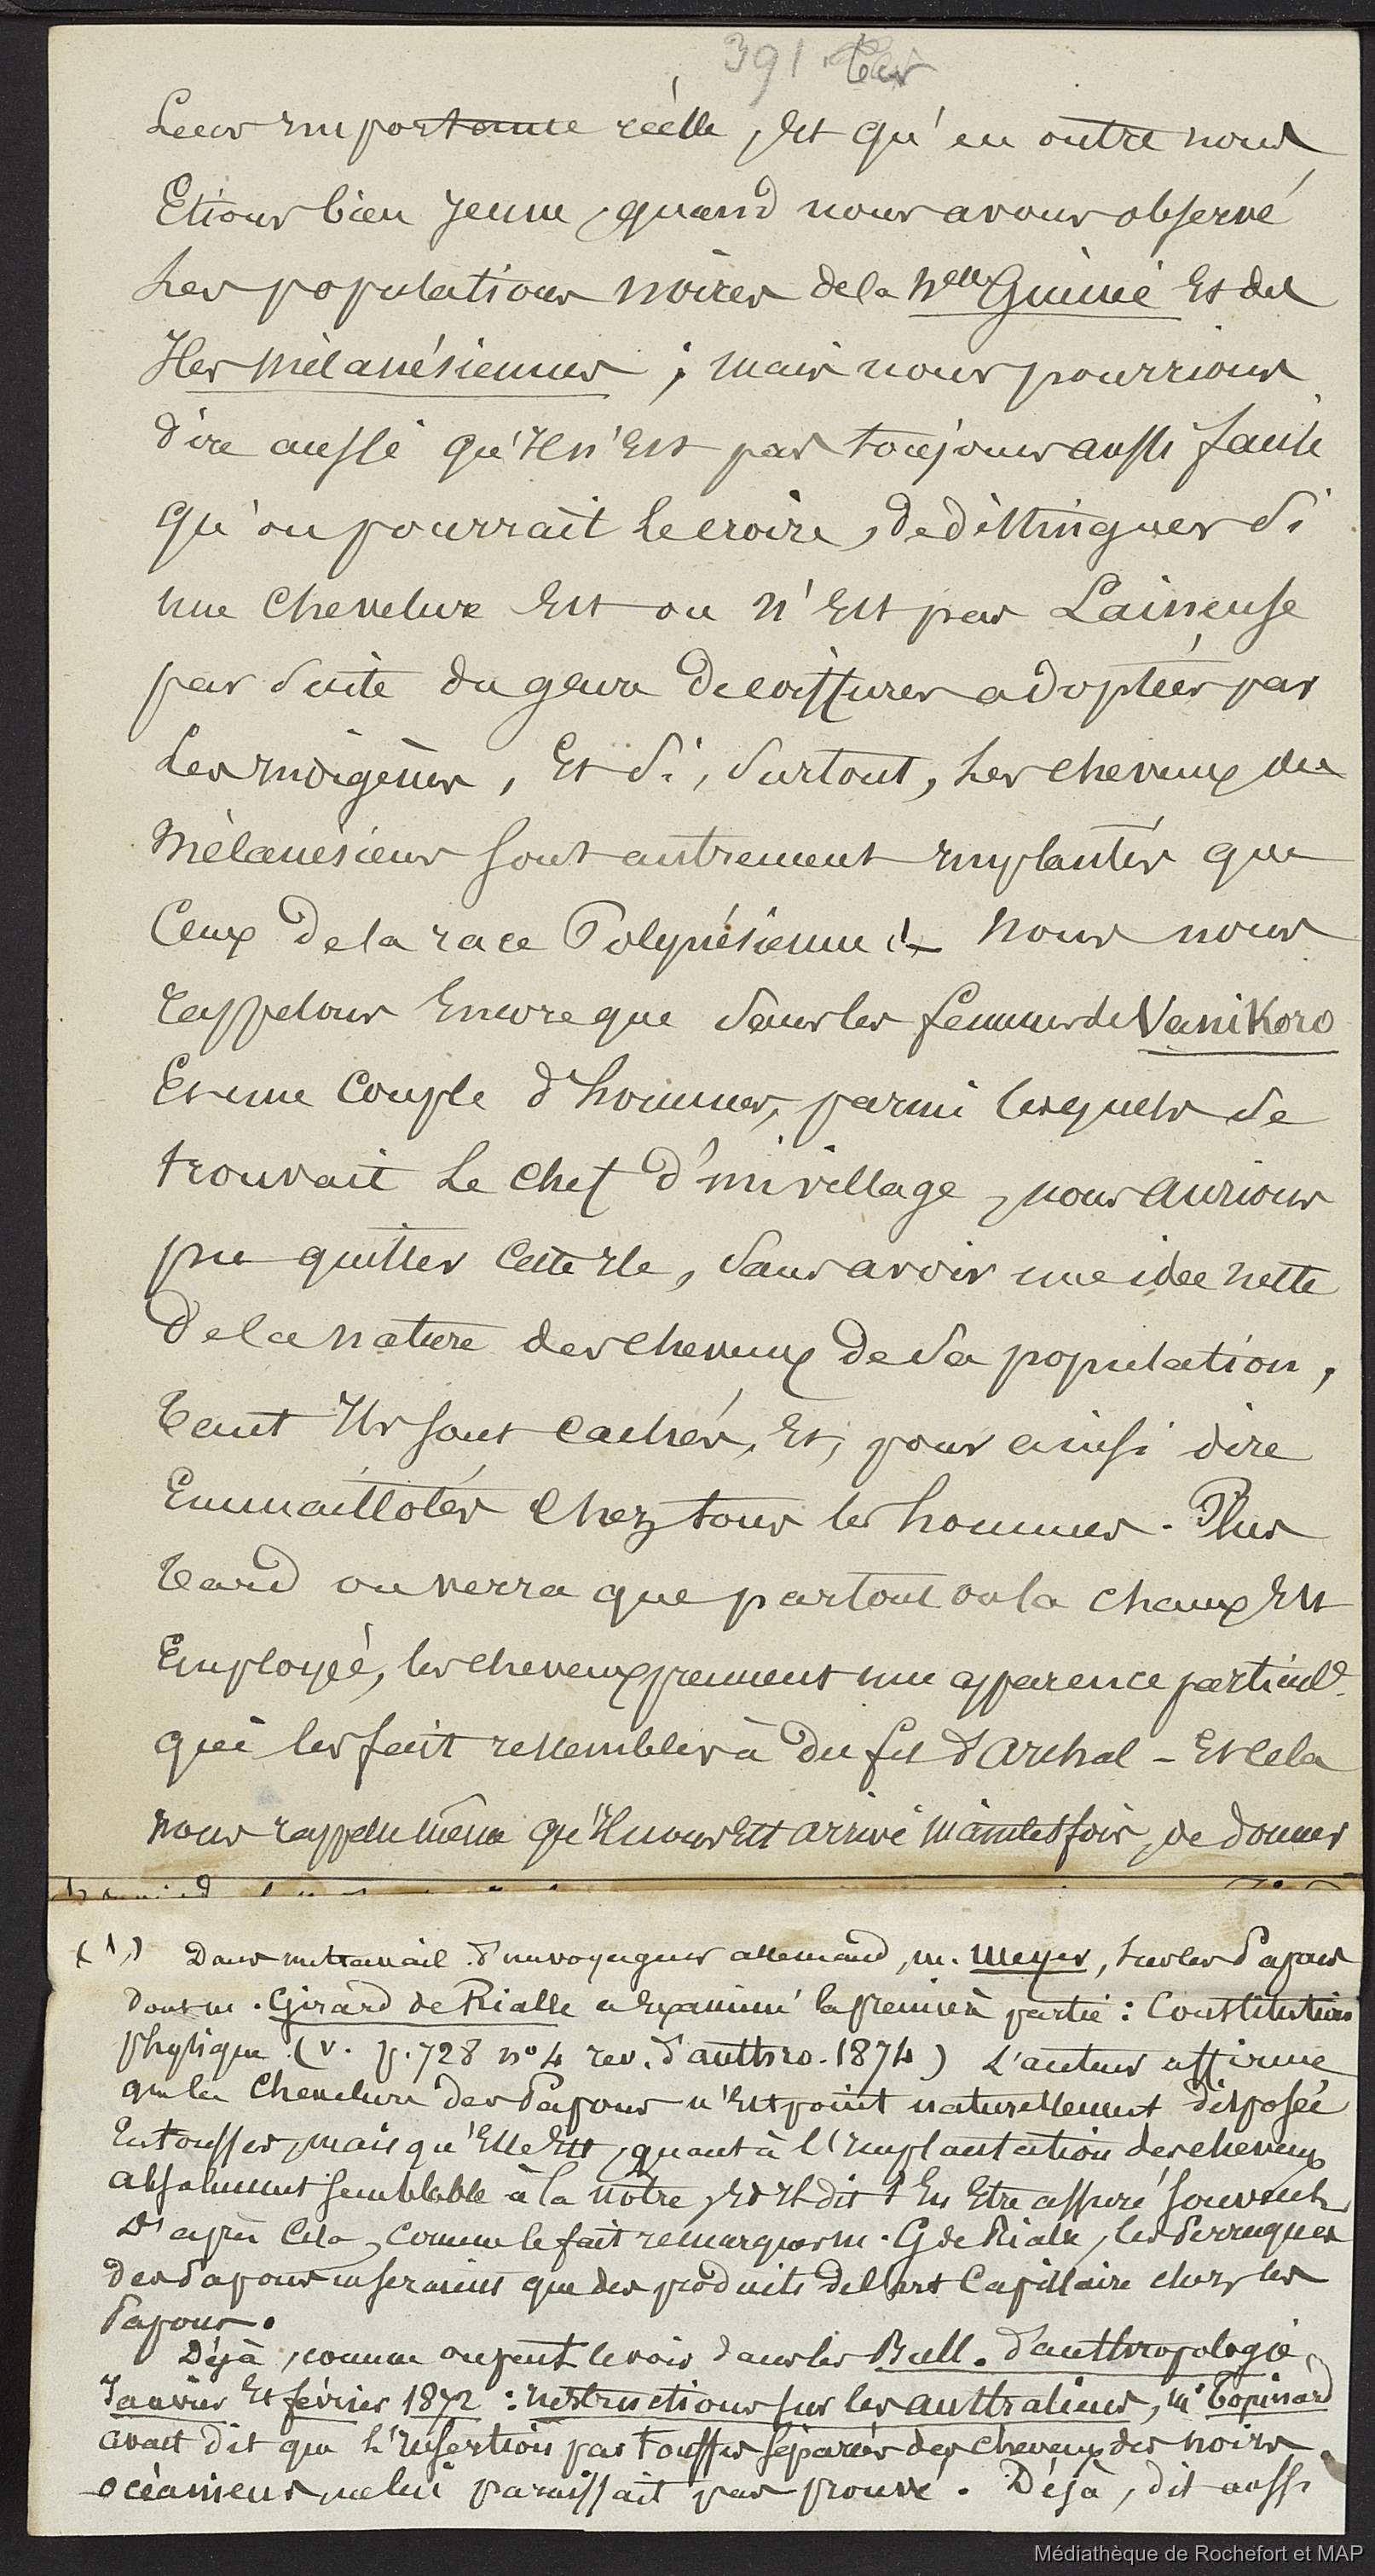 391 ter
Leur importance réelle, et qu'en outre nous
Etions bien jeune, quand nous avons observé
Les populations noires de la Nelle Guinée et des
Iles Mélanésiennes ; mais nous pourrions
dire aussi qu'il n'est pas toujours aussi facile
qu'on pourrait le croire, de distinguer si
une chevelure est ou n'est pas Laineuse
par suite du genre de coiffures adoptées par
Les indigènes, et si, surtout, les cheveux des
Mélanésiens sont autrement implantés que
Ceux de la race Polynésienne (1. Nous nous
rappelons encore que sans les femmes de Vanikoro
Et une couple d'hommes, parmi lesquels se
trouvait le chef d'un village, nous aurions
pu quitter cette ile, sans avoir une idée nette
de la nature des cheveux de sa population,
tant ils sont cachés, et, pour ainsi dire
Emmaillotés chez tous les hommes. Plus
tard on verra que partout où la chaux est
Employée, les cheveux prennent une apparence particule
qui les fait ressembler à du fil d'archal - Et cela
nous rappelle même qu'il nous est arrivé maintes fois, de donner
(1) Dans un travail d'un voyageur allemand, M. Meyer, sur les Papous
dont M. Girard de Rialle a examiné la première partie : Constitution
physique (v. p. 728 no 4 rev. d'anthro. 1874) L'auteur affirme
que la chevelure des Papous n'est point naturellement disposée
En touffes, mais qu'elle est, quant à l'implantation des cheveux
absolument semblable à la nôtre, et il dit s'en être assuré souvent.
D'après cela, comme le fait remarquer M. G de Rialle, les Perruques
des Papous ne seraient que des produits de l'art Capillaire chez les
Papous.
Déjà, comme on peut le voir dans les Bull. d'anthropologie,
Janvier et février 1872 : instructions sur les australiens, Mr Topinard
avait dit que l'insertion par touffes séparées des cheveux des noirs
océaniens, ne lui paraissait pas prouvé. Déjà, dit aussi
Médiathèque de Rochefort et MAP